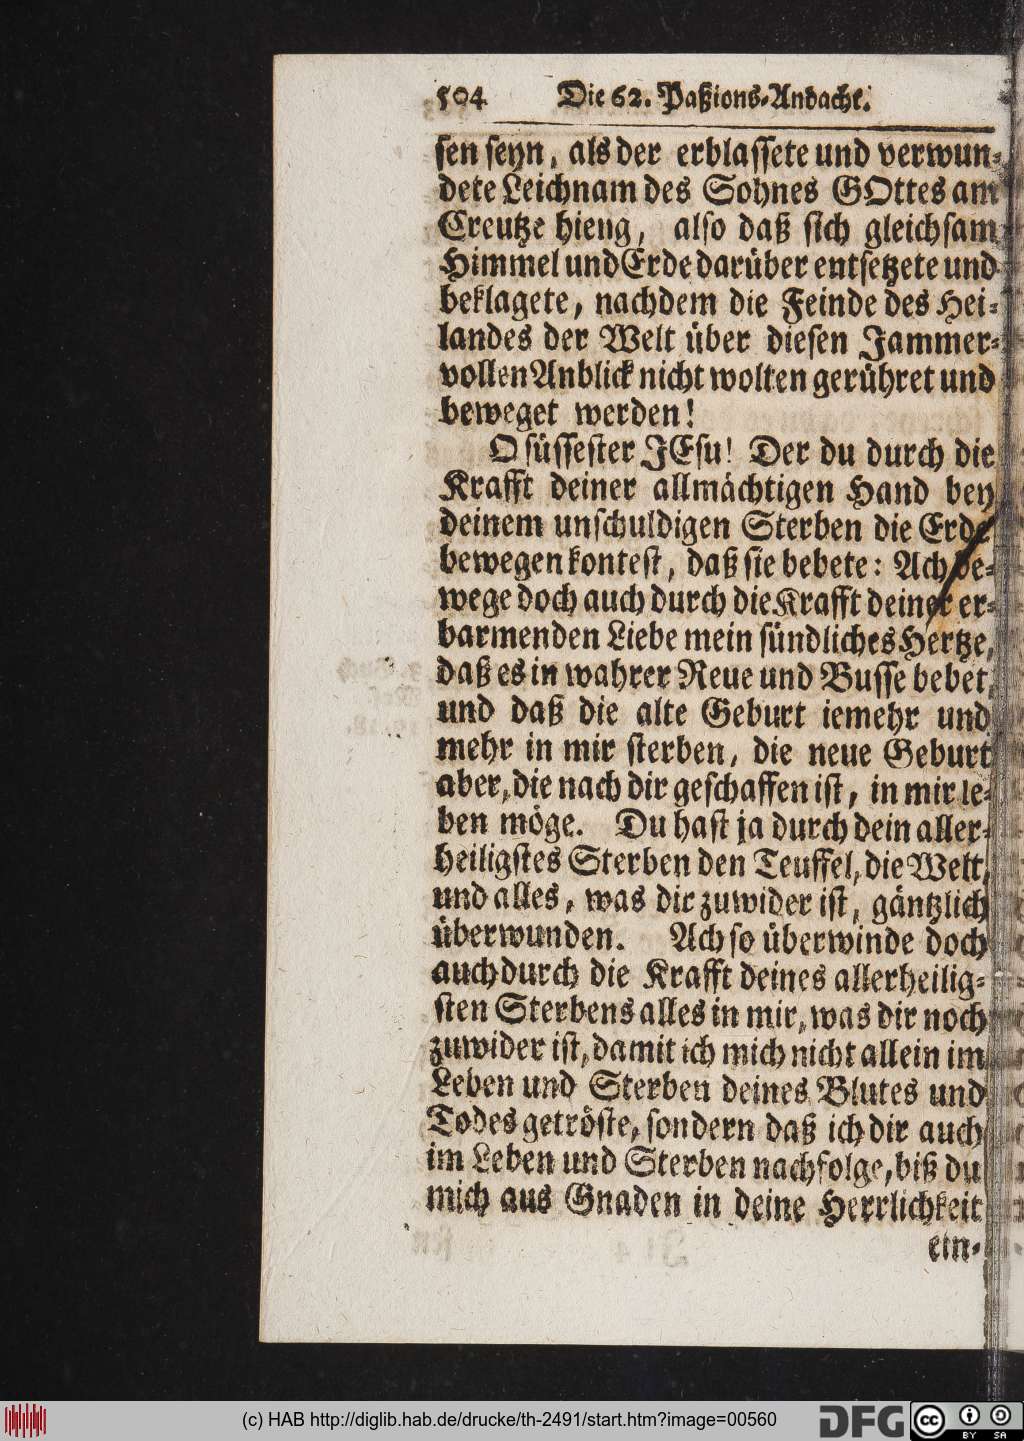 504 Die 62. Paßions-Andacht.
sen seyn, als der erblassete und verwun-
dete Leichnam des Sohnes GOttes am
Creutze hieng, also daß sich gleichsam
Himmel und Erde darüber entsetzete und
beklagete, nachdem die Feinde des Hei-
landes der Welt über diesen Jammer-
vollen Anblick nicht wolten gerühret und
beweget werden!
O süssester JEsu! Der du durch die
Krafft deiner allmächtigen Hand bey
deinem unschuldigen Sterben die Erde
bewegen kontest, daß sie bebete: Ach be-
wege doch auch durch die Krafft deiner er-
barmenden Liebe mein sündliches Hertze,
daß es in wahrer Reue und Busse bebet,
und daß die alte Geburt iemehr und
mehr in mir sterben, die neue Geburt
aber, die nach dir geschaffen ist, in mir le-
ben möge. Du hast ja durch dein aller-
heiligstes Sterben den Teuffel, die Welt,
und alles, was dir zuwider ist, gäntzlich
überwunden. Ach so überwinde doch
auch durch die Krafft deines allerheilig-
sten Sterbens alles in mir, was dir noch
zuwider ist, damit ich mich nicht allein im
Leben und Sterben deines Blutes und
Todes getröste, sondern daß ich dir auch
im Leben und Sterben nachfolge, biß du
mich aus Gnaden in deine Herrlichkeit
ein-
(c) HAB http://diglib.hab.de/drucke/th-2491/start.htm?image=00560
DFG
cc BY SA